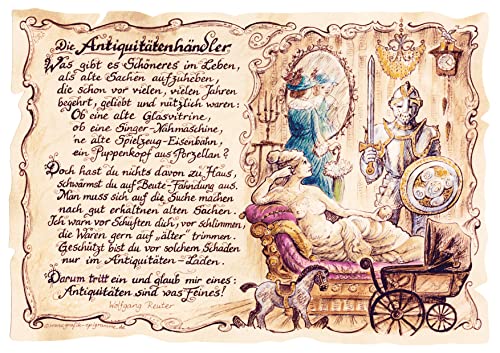 Die Antiquitätenhändler
Was gibt es Schöneres im Leben,
als alte Sachen aufzuheben,
die schon vor vielen, vielen Jahren
begehrt, geliebt und nützlich waren:
Ob eine alte Glasvitrine,
ob eine Singer-Nähmaschine,
'ne alte Spielzeug-Eisenbahn,
ein Puppenkopf aus Porzellan?
Doch hast du nichts davon zu Haus,
schwärmst du auf Beute-Fahndung aus.
Man muss sich auf die Suche machen
nach gut erhaltnen alten Sachen.
Ich warn vor Schuften dich, vor schlimmen,
die Waren gern auf „älter" trimmen.
Geschützt bist du vor solchem Schaden
nur im Antiquitäten-Laden.
Darum tritt ein und glaub mir eines:
Antiquitäten sind was Feines!
Wolfgang Reuter
©www.grafik-epigramme.de